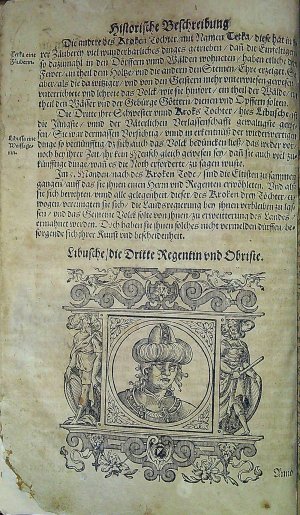 Historische Beschreibung
Die andere des Kroken Tochter, mit Namen Tetka, diese hat in
Tetka eine
Zauberin.
der Zauberey viel wunderbarliches dinges getrieben / daß die Einfeltigen
so dazumahl in den Dörffern vnnd Wälden wohneten / haben etliche dem
Fewer / ein theil dem Holtze / vnd die andern den Steinen / Ehre erzeiget. Sie
aber / als die da witziger / vnd von den Geistern mehr vnterwiesen gewesen /
vnterrichtete vnd lehrete das Volck / wie sie hinfort / ein theil der Wälde / ein
theil den Wässer vnd der Gebürge Göttern / dienen vnd Opffern solten.
Die Dritte jhre Schwester vnnd Kroks Tochter / hies Libusche / ist
Libusche eine
die Jüngste / vnnd der Väterlichen Verlassenschafft gewaltigste gewesen /
Sie war dermassen Vorsichtig / vnnd in erkentniß der wiederwertigen
dinge so vernünfftig / dz sich auch das Volck bedüncken ließ / das weder vor
noch bey jhrer Zeit / jhr kein Mensch gleich gewesen sey / daß sie auch viel zu-
künfftige dinge / wann es die Noth erforderte, zu sagen wuste.
Im Monden / nach des Kroken Tode / sind die Elisten zusammen
gangen / auff das sie jhnen einen Herrn vnd Regenten erwöhleten. Vnd als
sie sich berathen / vnnd alle gelegenheit dieser / des Kroken drey Töchter er-
wogen / vereinigten sie sich / die Landsregierung bey jhnen verbleiben zu las-
sen / vnd das Gemeine Volck solte von jhnen / zu erweitterung des Landes /
ermahnet werden. Doch haben sie jhnen solches nicht vermelden dürffen / be-
sorgende sich jhrer Kunst vnd bescheidenheit.
Libusche / die Dritte Regentin vnd Obriste.
Anno